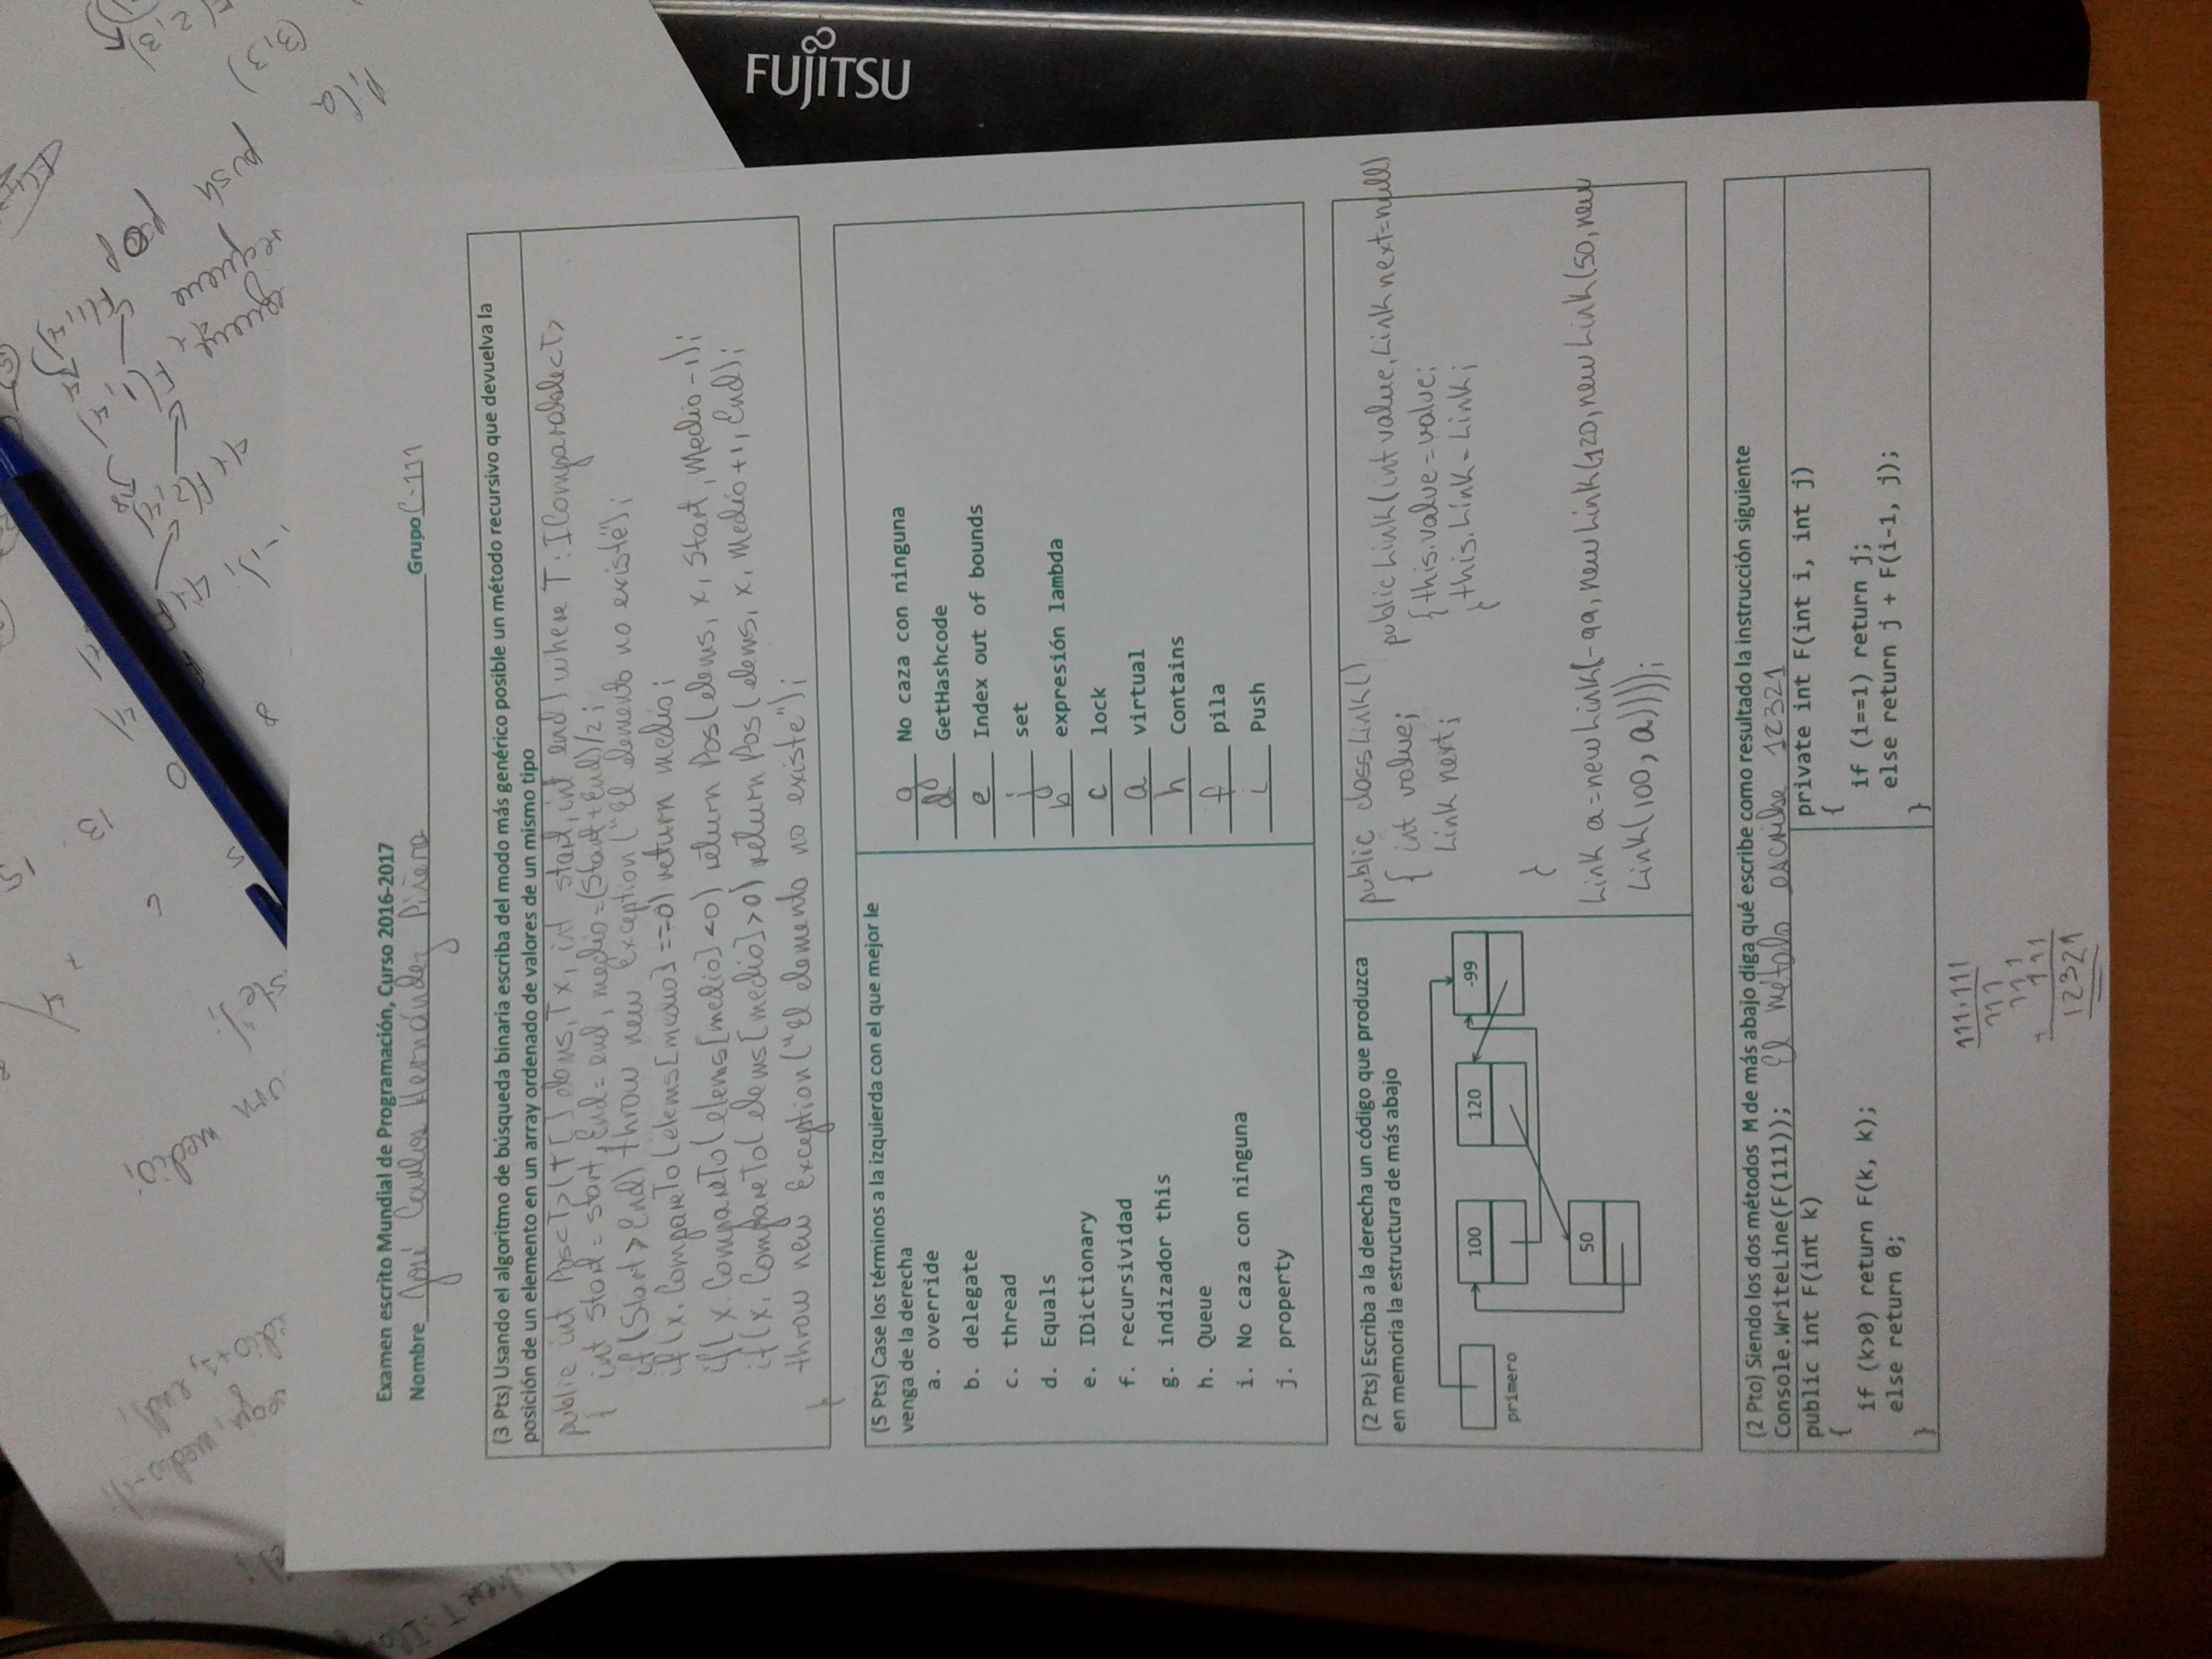 15
13
medio;
0
8
pop
push
(3,3)
pila
Examen escrito Mundial de Programación, Curso 2016-2017
Nombre José Carlos Hernández Piñero Grupo C-111
(3 Pts) Usando el algoritmo de búsqueda binaria escriba del modo más genérico posible un método recursivo que devuelva la
posición de un elemento en un array ordenado de valores de un mismo tipo
public int Pos<T>(T[] elems, T x, int start, int end) where T : IComparable<T>
{ int Start = start, End = end, medio = (Start + End)/2;
if (Start > End) throw new Exception ("El elemento no existe");
if (x. CompareTo (elems [medio] ==0) return medio;
if( x. CompareTo( elems [medio] <0) return Pos(elems, x, Start, Medio -1);
if (x. CompareTo( elems [medio] >0) return Pos( elems, x, Medio +1, End);
throw new Exception ("El elemento no existe");
}
(5 Pts) Case los términos a la izquierda con el que mejor le
venga de la derecha
a. override
b. delegate
c. thread
d. Equals
e. IDictionary
f. recursividad
g. indizador this
h. Queue
i. No caza con ninguna
j. property
g No caza con ninguna
d GetHashcode
e Index out of bounds
j set
b expresión lambda
c lock
a virtual
h Contains
f pila
i Push
(2 Pts) Escriba a la derecha un código que produzca
en memoria la estructura de más abajo
primero
100
120
-99
50
public class Link()
{ int value;
Link next;
public Link(int value, Link next=null)
{ this.value = value;
this.Link = Link;
}
}
Link a = new Link(-99, new Link(120, new Link(50, new
Link(100, a))));
(2 Pto) Siendo los dos métodos M de más abajo diga qué escribe como resultado la instrucción siguiente
Console.WriteLine(F(111)); El método escribe 12321
public int F(int k)
{
if (k>0) return F(k, k);
else return 0;
}
private int F(int i, int j)
{
if (i==1) return j;
else return j + F(i-1, j);
}
111.111
111
111
+ 111
12321
FUJITSU